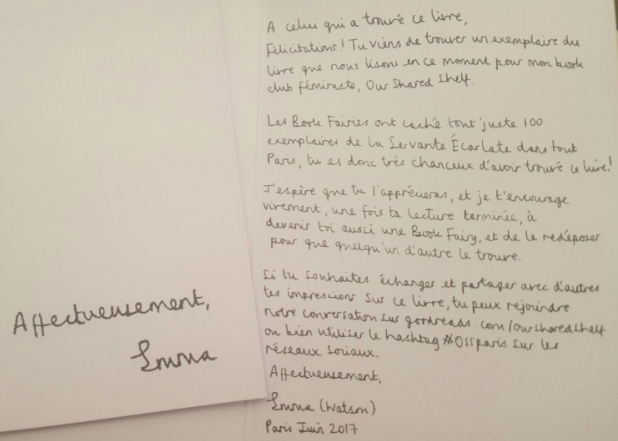 A celui qui a trouvé ce livre,
Félicitations! Tu viens de trouver un exemplaire du
livre que nous lisons en ce moment pour mon book
club féministe, Our Shared Shelf.
Les Book Fairies ont caché tout juste 100
exemplaires de la Servante Écarlate dans tout
Paris, tu es donc très chanceux d'avoir trouvé ce livre!
J'espère que tu l'apprécieras, et je t'encourage
vivement, une fois ta lecture terminée, à
devenir toi aussi une Book Fairy, et de le redéposer
pour que quelqu'un d'autre le trouve.
Si tu souhaites échanger et partager avec d'autres
tes impressions sur ce livre, tu peux rejoindre
notre conversation sur goodreads.com/oursharedshelf
ou bien utiliser le hashtag #OSSparis sur les
réseaux sociaux.
Affectueusement,
Emma (Watson)
Paris Juin 2017
Affectueusement,
Emma